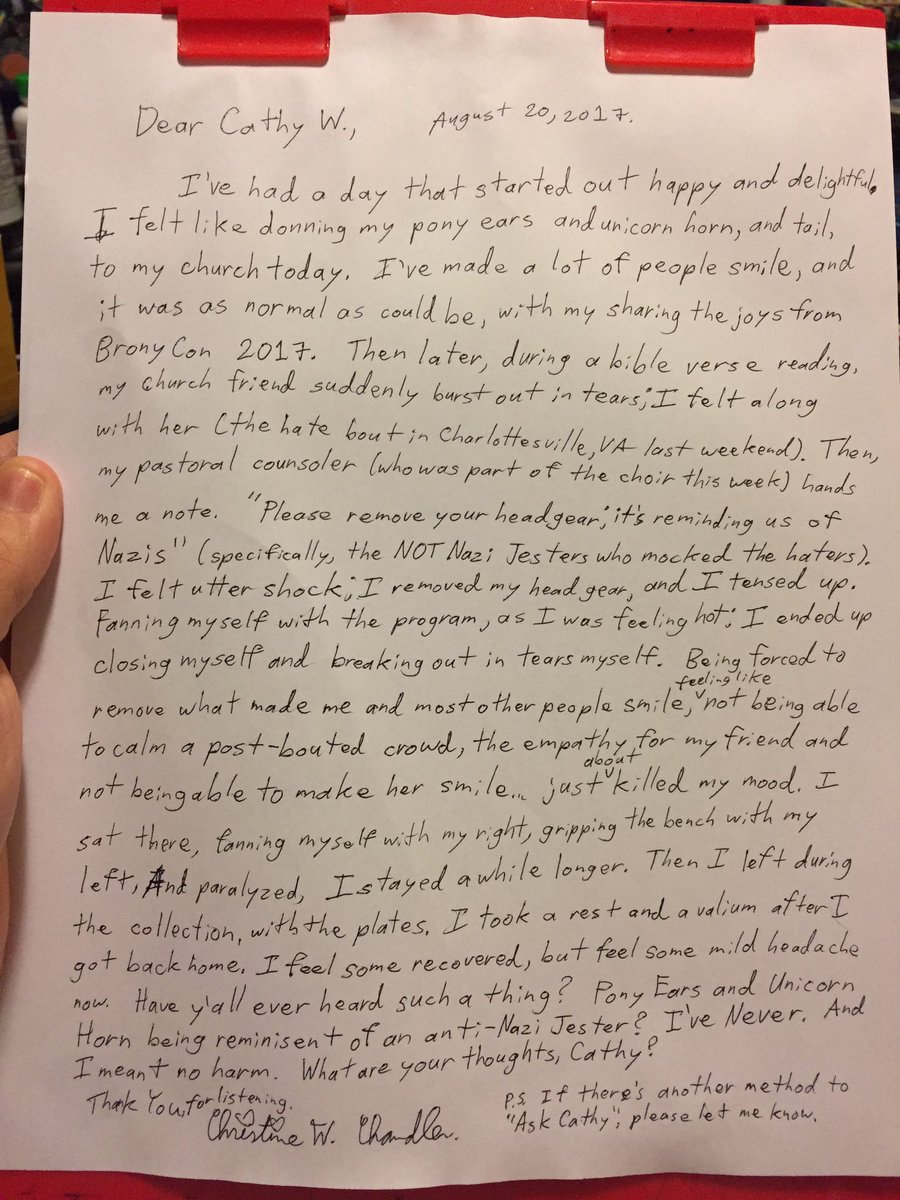 Dear Cathy W., August 20, 2017.
I've had a day that started out happy and delightful.
I felt like donning my pony ears and unicorn horn, and tail,
to my church today. I've made a lot of people smile, and
it was as normal as could be, with my sharing the joys from
BronyCon 2017. Then later, during a bible verse reading,
my church friend suddenly burst out in tears; I felt along
with her (the hate bout in Charlottesville, VA last weekend). Then,
my pastoral counsoler (who was part of the choir this week) hands
me a note. "Please remove your headgear; it's reminding us of
Nazis" (specifically, the NOT Nazi Jesters who mocked the haters).
I felt utter shock; I removed my head gear, and I tensed up.
Fanning myself with the program, as I was feeling hot; I ended up
closing myself and breaking out in tears myself. Being forced to
remove what made me and most other people smile, feeling like not being able
to calm a post-bouted crowd, the empathy for my friend and
not being able to make her smile... just about killed my mood. I
sat there, fanning myself with my right, gripping the bench with my
left, And paralyzed, I stayed a while longer. Then I left during
the collection, with the plates. I took a rest and a valium after I
got back home. I feel some recovered, but feel some mild headache
now. Have y'all ever heard such a thing? Pony Ears and Unicorn
Horn being reminisent of an anti-Nazi Jester? I've Never. And
I meant no harm. What are your thoughts, Cathy?
Thank You, for listening.
Christine W. Chandler.
P.S. If there's another method to
"Ask Cathy", please let me know.